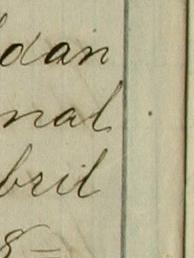 dan
nal
bril
8=